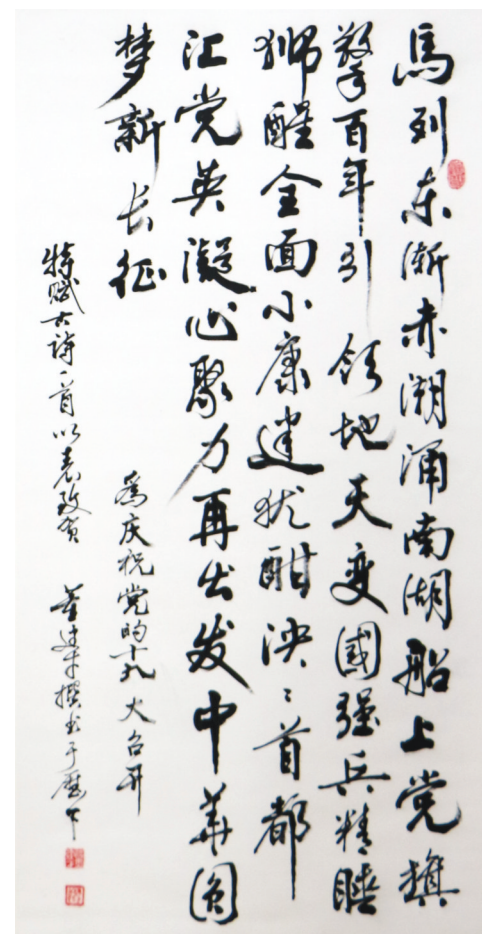 馬列东渐赤潮涌南湖船上党旗
擎百年引领地天变國强兵精睡
狮醒全面小康建犹酣泱泱首都
汇党英凝心聚力再出发中華圆
梦新长征
為庆祝党的十九大召开
特赋古诗一首以表致贺 董建才撰书于歷下